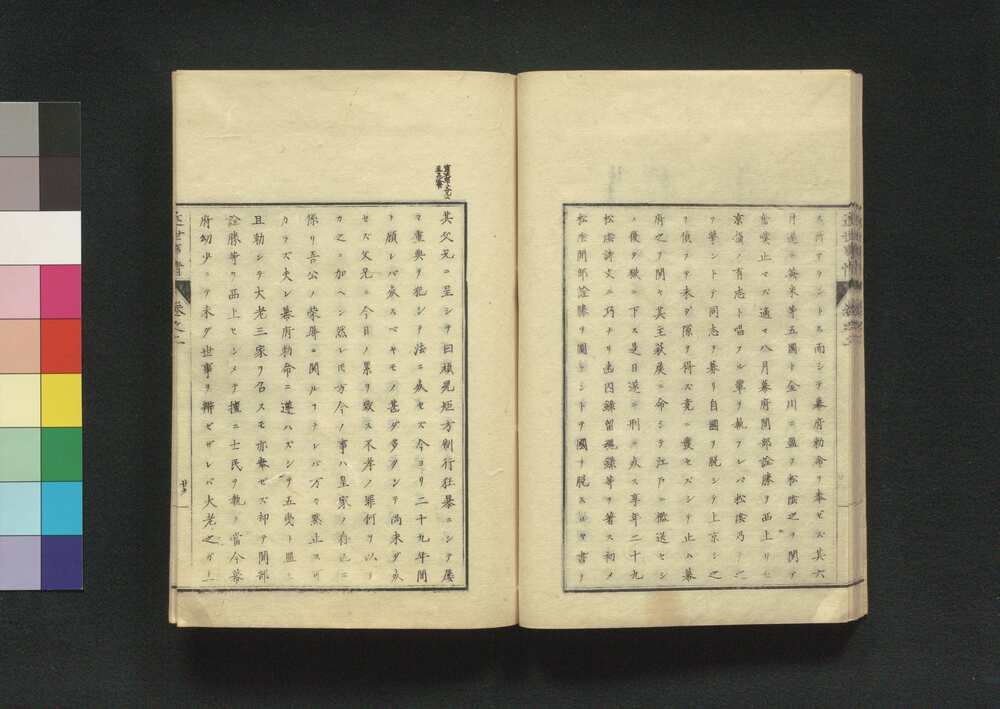 ス所アラントス而シテ幕府勅命ヲ奉ゼズ其六
月遂ニ英米等五國ト金川ニ盟ヲ松陰之ヲ聞テ
止マズ適マ八月幕府間部詮勝ヲ西上
京師ノ有志ト唱フル輩ヲ執フレバ松陰乃チ之
ヲ撃ントテ同志ヲ募リ自國ヲ脱シテ上京シ之
ヲ偵フテ未ダ隙ヲ得ズ意ヲ果セズシテ止ハ幕
府之ヲ聞キ其主萩侯ニ命シテ江戸ニ檻送セシ
メ後チ獄ニ下ス是日遂ニ刑ニ死ス享年二十九
松陰詩文ニ巧ナリ幽囚録留魂録等ヲ著ス初メ
松陰間部詮勝ヲ圖ントシテ國ヲ脱スルヤ書ヲ
其父兄ニ呈シテ曰頑兒矩方制行狂暴ニシテ屢
マ重典ヲ犯シテ法ニ死セズ今ヨリ二十九年間
ヲ顧レバ死スベキモノ甚ダ多クシテ尚未ダ死
セズ父兄ニ今日ノ累ヲ致ス不孝ノ罪何ヲ以テ
カ之ニ加ヘン然レ𪜈方今ノ事ハ皇家ノ存亡ニ
係リ吾公ノ榮辱ニ関ルヿナレバ万々黙止スベ
カラズ夫レ幕府勅命ニ遵ハズシテ五夷ト盟
且勅シテ大老三家ヲ召スモ亦奉ゼズ却テ間部
詮勝等ヲ西上セシメテ擅ニ士民ヲ執フ當今幕
府幼少ニシテ未ダ世事ヲ辨ビザレバ大老之ガ上
近世事情 卷之二